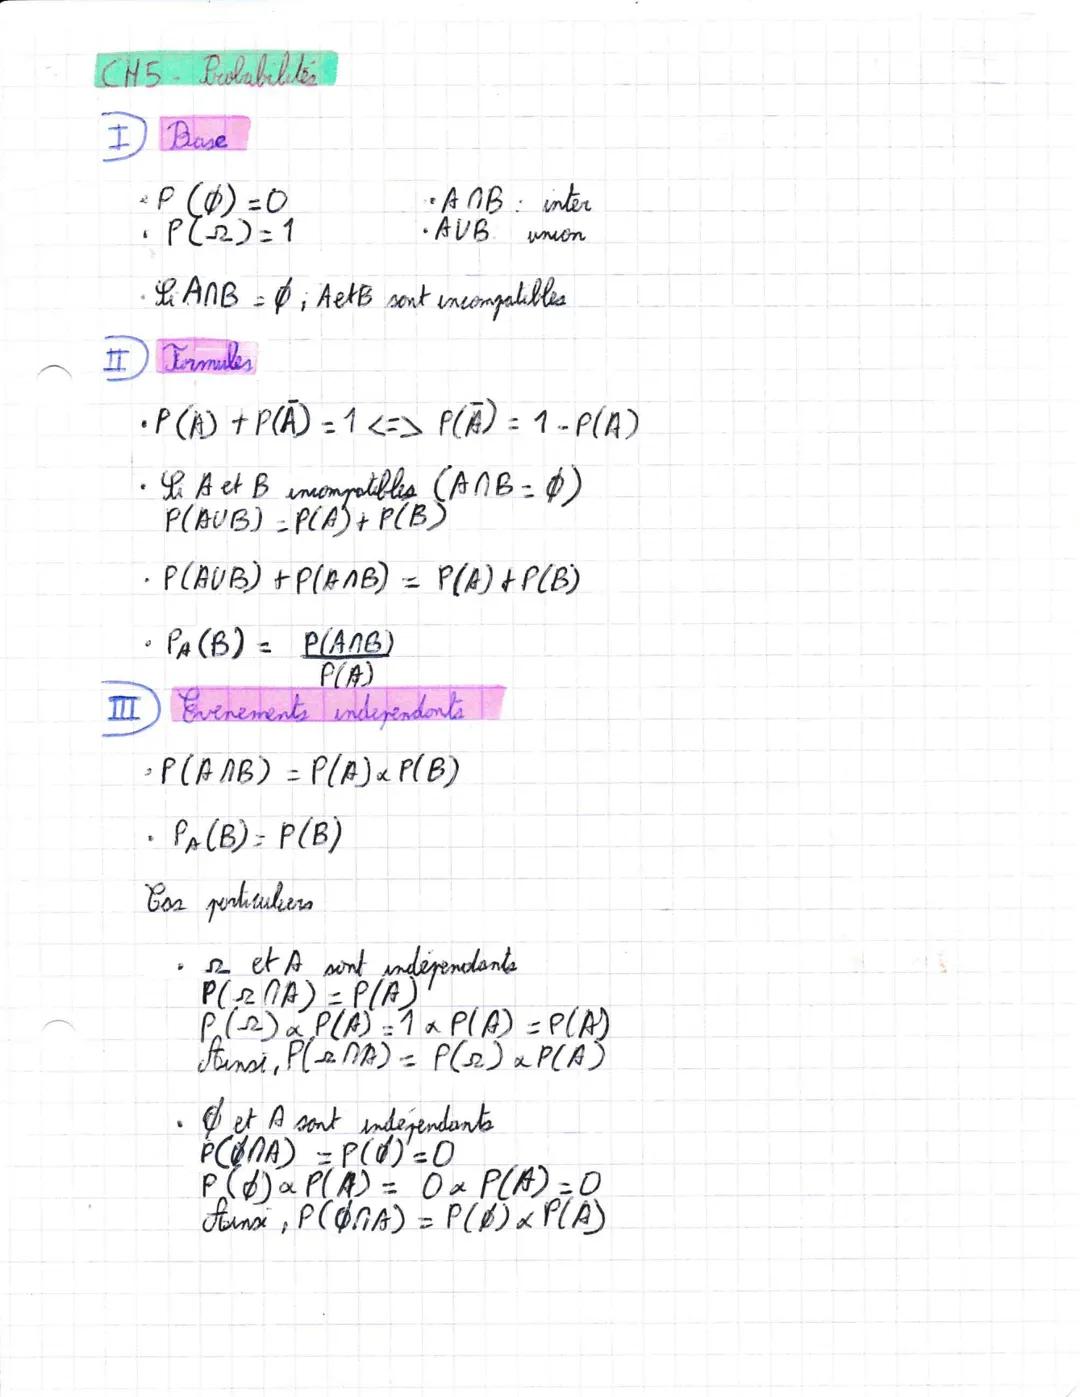 CH5 - Probabilités
I) Base
• P(∅) = 0 • A∩B : inter
• P(Ω) = 1 • A∪B union
• Si A∩B = ∅ ; A et B sont incompatibles
II) Formules
• P(A) + P(Ā) = 1 <=> P(Ā) = 1 - P(A)
• Si A et B incompatibles (A∩B = ∅)
P(A∪B) = P(A) + P(B)
• P(A∪B) + P(A∩B) = P(A) + P(B)
• P_A(B) = P(A∩B)
P(A)
III) Evenements independants
• P(A∩B) = P(A) × P(B)
• P_A(B) = P(B)
Cas particuliers
• Ω et A sont indépendants
P(Ω∩A) = P(A)
P(Ω) × P(A) = 1 × P(A) = P(A)
Ainsi, P(Ω∩A) = P(Ω) × P(A)
• ∅ et A sont indépendants
P(∅∩A) = P(∅) = 0
P(∅) × P(A) = 0 × P(A) = 0
Ainsi, P(∅∩A) = P(∅) × P(A)